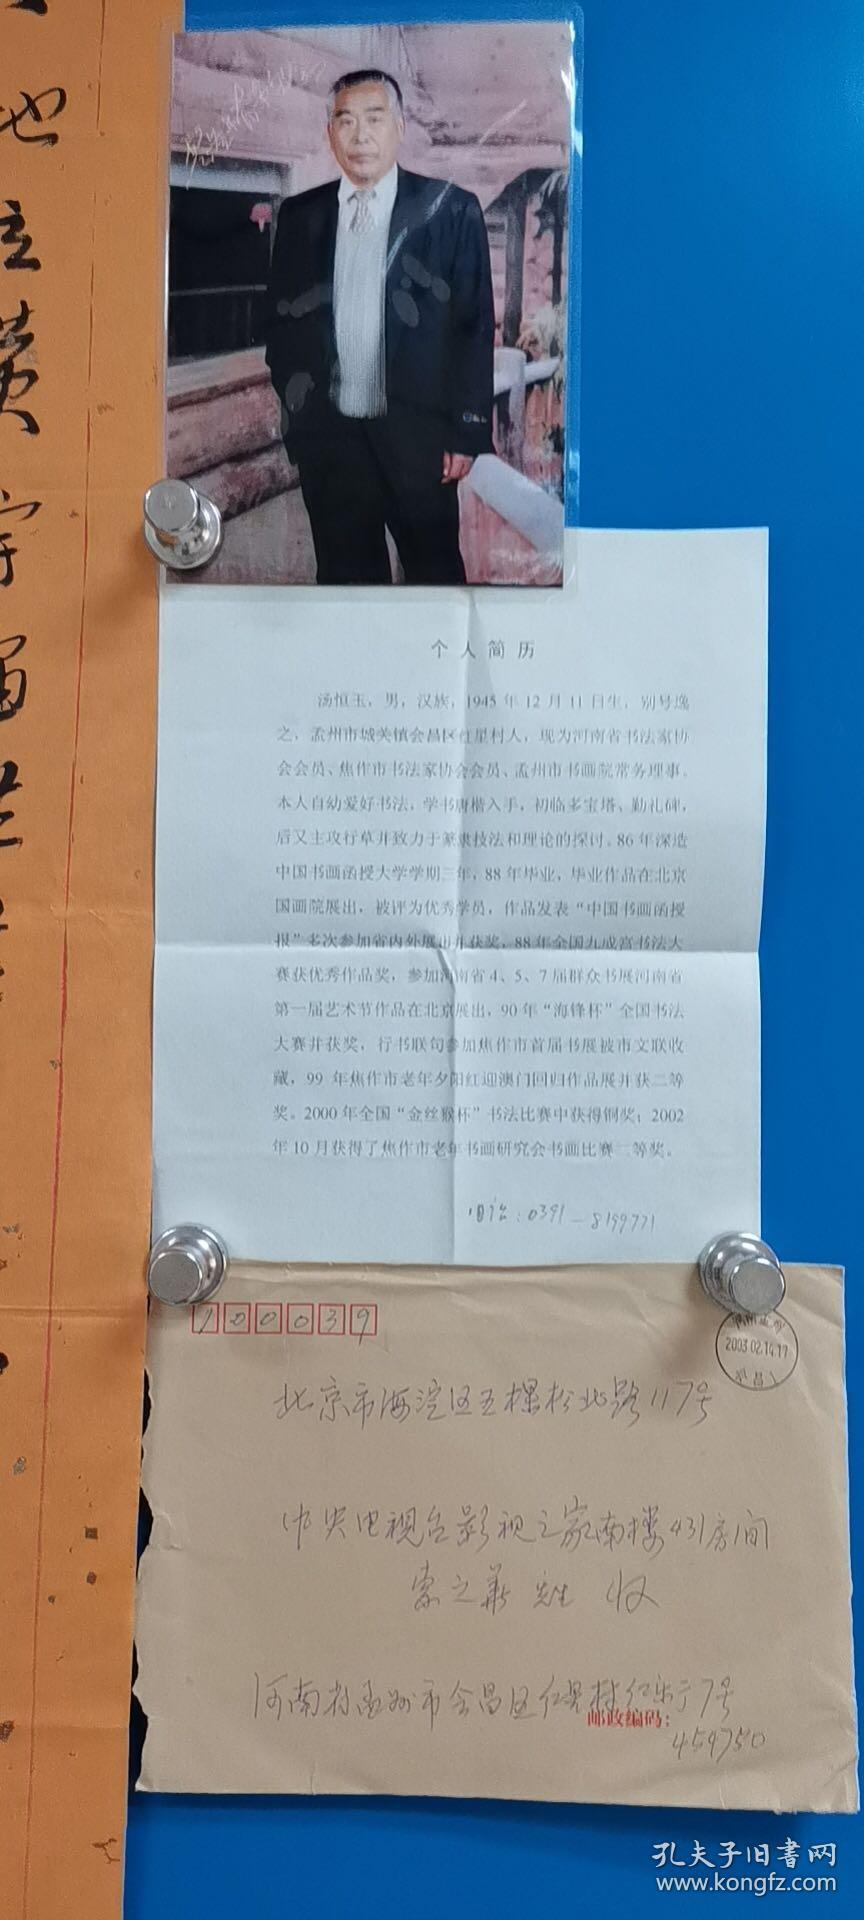 也
立
黄
宇
宙
个人简历
汤恒玉，男，汉族，1945年12月11日生，别号逸
之，孟州市城关镇会昌区红星村人，现为河南省书法家协
会会员、焦作市书法家协会会员、孟州市书画院常务理事。
本人自幼爱好书法，学书唐楷入手，初临多宝塔、勤礼碑，
后又主攻行草并致力于篆隶技法和理论的探讨。86年深造
中国书画函授大学学期三年，88年毕业，毕业作品在北京
国画院展出，被评为优秀学员，作品发表“中国书画函授
报”多次参加省内外展出并获奖，88年全国九成宫书法大
赛获优秀作品奖，参加河南省4、5、7届群众书展河南省
第一届艺术节作品在北京展出，90年“海锋杯”全国书法
大赛并获奖，行书联句参加焦作市首届书展被市文联收
藏，99年焦作市老年夕阳红迎澳门回归作品展并获二等
奖。2000年全国“金丝猴杯”书法比赛中获得铜奖；2002
年10月获得了焦作市老年书画研究会书画比赛二等奖。
电话：0391-8199771
100039
2003.02.14.17
北京市海淀区五棵松北路117号
中央电视台影视之家南楼431房间
索之华 先生 收
河南省孟州市会昌区红星村红乐7号
邮政编码：
454750
孔夫子旧书网
www.kongfz.com